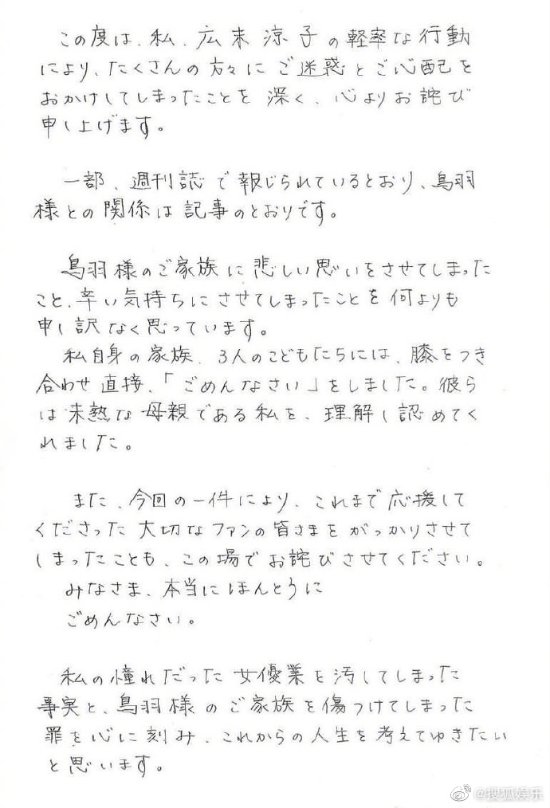 この度は、私、広末涼子の軽率な行動
により、たくさんの方々にご迷惑とご心配を
おかけしてしまったことを深く、心よりお詫び
申し上げます。
一部、週刊誌で報じられているとおり、鳥羽
様との関係は記事のとおりです。
鳥羽様のご家族に悲しい思いをさせてしまった
こと、辛い気持ちにさせてしまったことを何よりも
申し訳なく思っています。
私自身の家族、3人のこどもたちには、膝をつき
合わせ直接、「ごめんなさい」をしました。彼ら
は未熟な母親である私を、理解し認めてく
れました。
また、今回の一件により、これまで応援して
くださった大切なファンの皆さまをがっかりさせて
しまったことも、この場でお詫びさせてください。
みなさま、本当にほんとうに
ごめんなさい。
私の憧れだった女優業を汚してしまった
事実と、鳥羽様のご家族を傷つけてしまった
罪を心に刻み、これからの人生を考えてゆきたい
と思います。
@搜狐娱乐